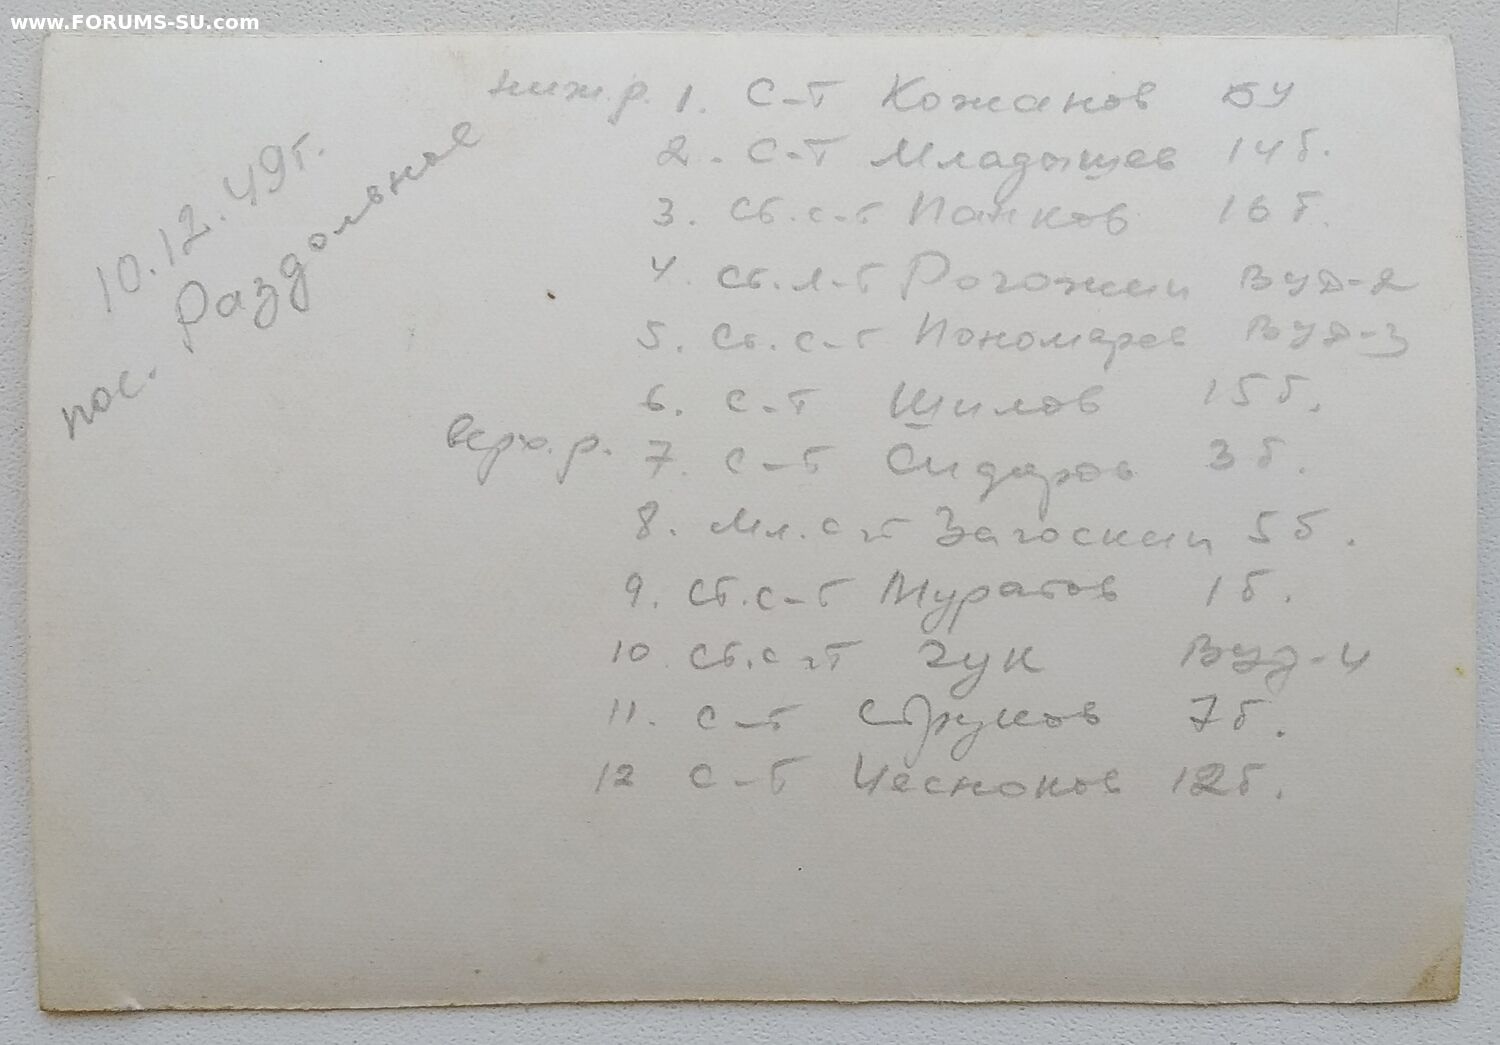 www.FORUMS-SU.com
10.12.49г.
пос. Раздольное
нижн.р. 1. С-т Кожанов БУ
2. С-т Младышев 14б.
3. Ст. с-т Панков 16б.
4. Ст. л-т Рогожин ВУД-2
5. Ст. с-т Пономарев ВУД-3
6. С-т Шилов 15б.
верх.р. 7. С-т Сидоров 3б.
8. Мл. с-т Загоскин 5б.
9. Ст. с-т Муратов 1б.
10. Ст. с-т Гук ВУД-4
11. С-т Струков 7б.
12 С-т Чесноков 12б.